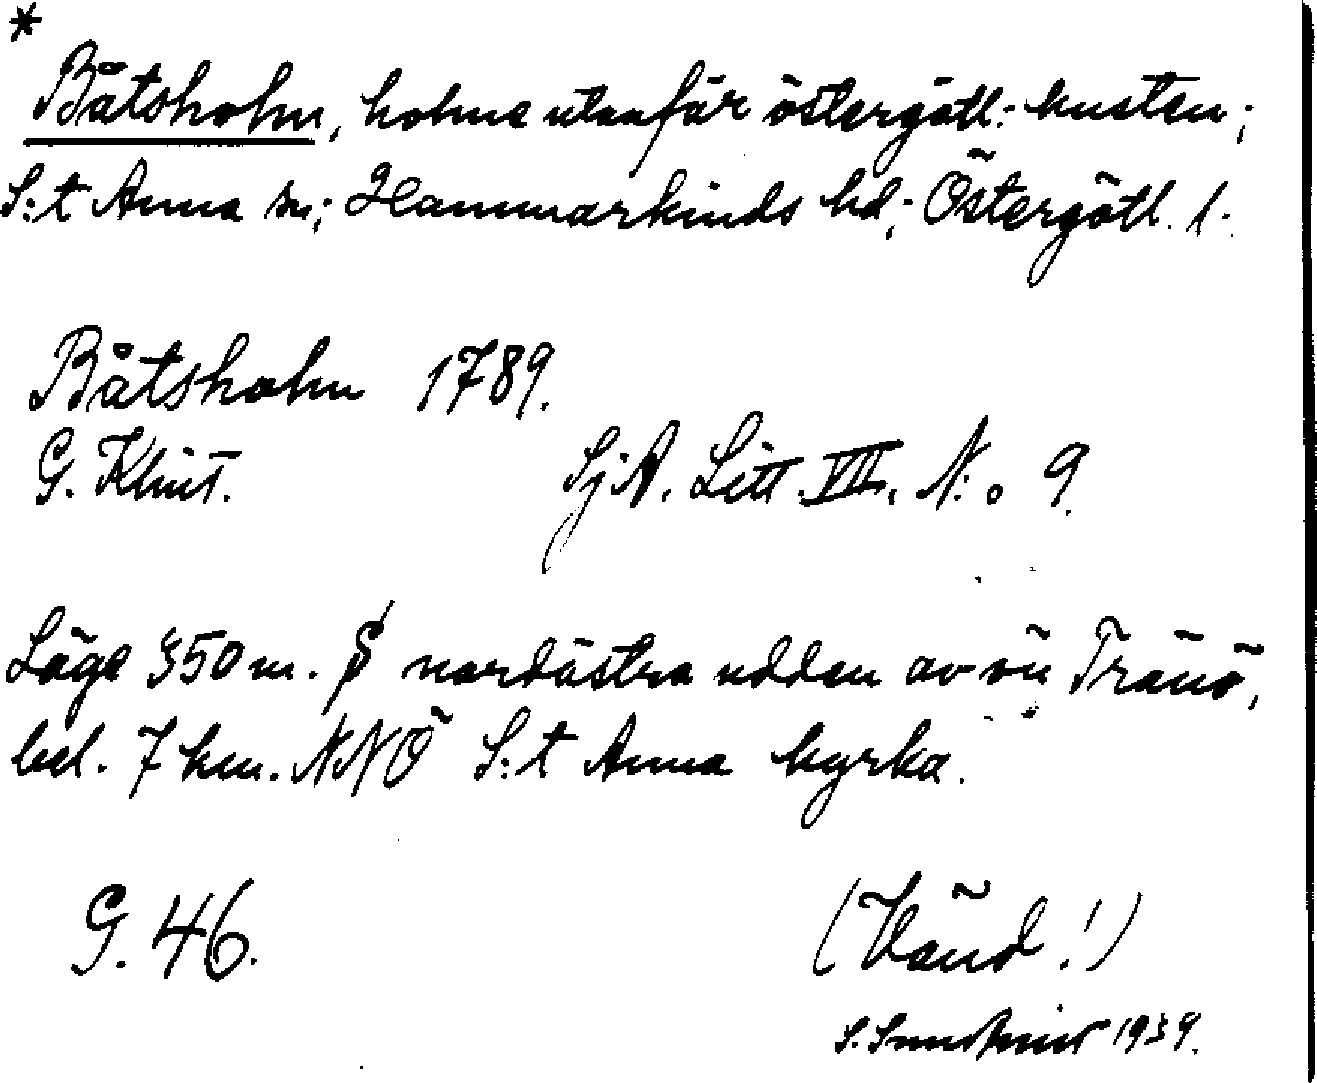 *
Båtsholm, holme utanför östergötl. kusten;
S:t Anna sn; Hammarkinds hd; Östergötl. l.
Båtsholm 1789.
G. Klint. SjA. Litt. VII. N:o 9.
Läge 350 m. S nordöstra udden av ön Tränö,
bel. 7 km. NNÖ S:t Anna kyrka.
G. 46. (Vänd!)
S. 1939.